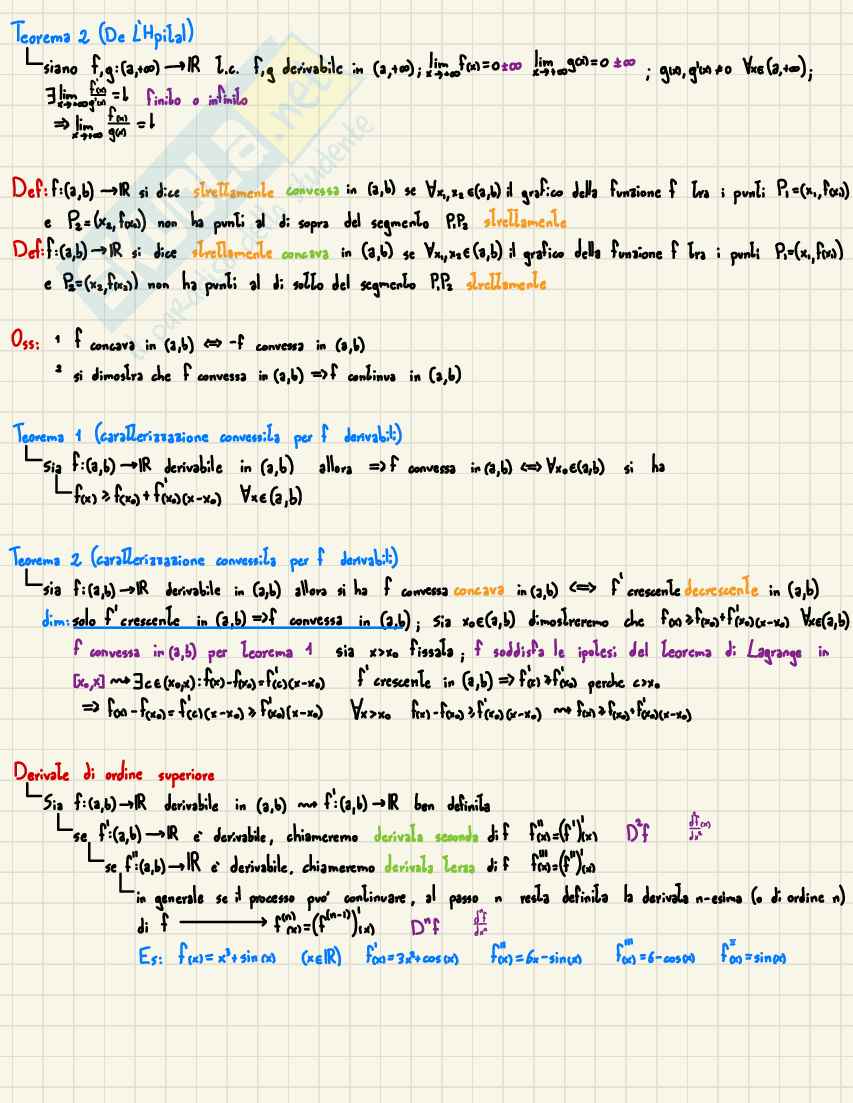 Teorema 2 (De L'Hpital)
siano f,g:(a,+∞)→ℝ t.c. f,g derivabile in (a,+∞); lim x→+∞ f(x)=0 ±∞ lim x→+∞ g(x)=0 ±∞ ; g(x), g'(x)≠0 ∀x∈(a,+∞);
∃ lim x→+∞ f'(x)/g'(x) = l finito o infinito
⇒ lim x→+∞ f(x)/g(x) = l
Def: f:(a,b)→ℝ si dice strettamente convessa in (a,b) se ∀x₁,x₂∈(a,b) il grafico della funzione f tra i punti P₁=(x₁,f(x₁))
e P₂=(x₂,f(x₂)) non ha punti al di sopra del segmento P₁P₂ strettamente
Def: f:(a,b)→ℝ si dice strettamente concava in (a,b) se ∀x₁,x₂∈(a,b) il grafico della funzione f tra i punti P₁=(x₁,f(x₁))
e P₂=(x₂,f(x₂)) non ha punti al di sotto del segmento P₁P₂ strettamente
Oss: 1 f concava in (a,b) ⇔ -f convessa in (a,b)
2 si dimostra che f convessa in (a,b) ⇒ f continua in (a,b)
Teorema 1 (caratterizzazione convessità per f derivabili)
Sia f:(a,b)→ℝ derivabile in (a,b) allora ⇒ f convessa in (a,b) ⇔ ∀x₀∈(a,b) si ha
f(x) ≥ f(x₀)+f'(x₀)(x-x₀) ∀x∈(a,b)
Teorema 2 (caratterizzazione convessità per f derivabili)
sia f:(a,b)→ℝ derivabile in (a,b) allora si ha f convessa concava in (a,b) ⇔ f' crescente decrescente in (a,b)
dim: solo f' crescente in (a,b) ⇒ f convessa in (a,b); Sia x₀∈(a,b) dimostreremo che f(x)≥f(x₀)+f'(x₀)(x-x₀) ∀x∈(a,b)
f convessa in (a,b) per teorema 1 sia x>x₀ fissata; f soddisfa le ipotesi del teorema di Lagrange in
[x₀,x] ⇝ ∃c∈(x₀,x): f(x)-f(x₀)=f'(c)(x-x₀) f' crescente in (a,b) ⇒ f'(c)≥f'(x₀) perche c>x₀
⇒ f(x)-f(x₀)=f'(c)(x-x₀)≥f'(x₀)(x-x₀) ∀x>x₀ f(x)-f(x₀)≥f'(x₀)(x-x₀) ⇝ f(x)≥f(x₀)+f'(x₀)(x-x₀)
Derivate di ordine superiore
Sia f:(a,b)→ℝ derivabile in (a,b) ⇝ f':(a,b)→ℝ ben definita
se f':(a,b)→ℝ e' derivabile, chiameremo derivata seconda di f f''(x)=(f')'(x) D²f d²f/dx²(x)
se f'':(a,b)→ℝ e' derivabile, chiameremo derivata terza di f f'''(x)=(f'')'(x)
in generale se il processo puo' continuare, al passo n resta definita la derivata n-esima (o di ordine n)
di f ⟶ f⁽ⁿ⁾(x)=(f⁽ⁿ⁻¹⁾)'(x) Dⁿf dⁿf/dxⁿ
Es: f(x)=x³+sin(x) (x∈ℝ) f'(x)=3x²+cos(x) f''(x)=6x-sin(x) f'''(x)=6-cos(x) f(x)=sin(x)